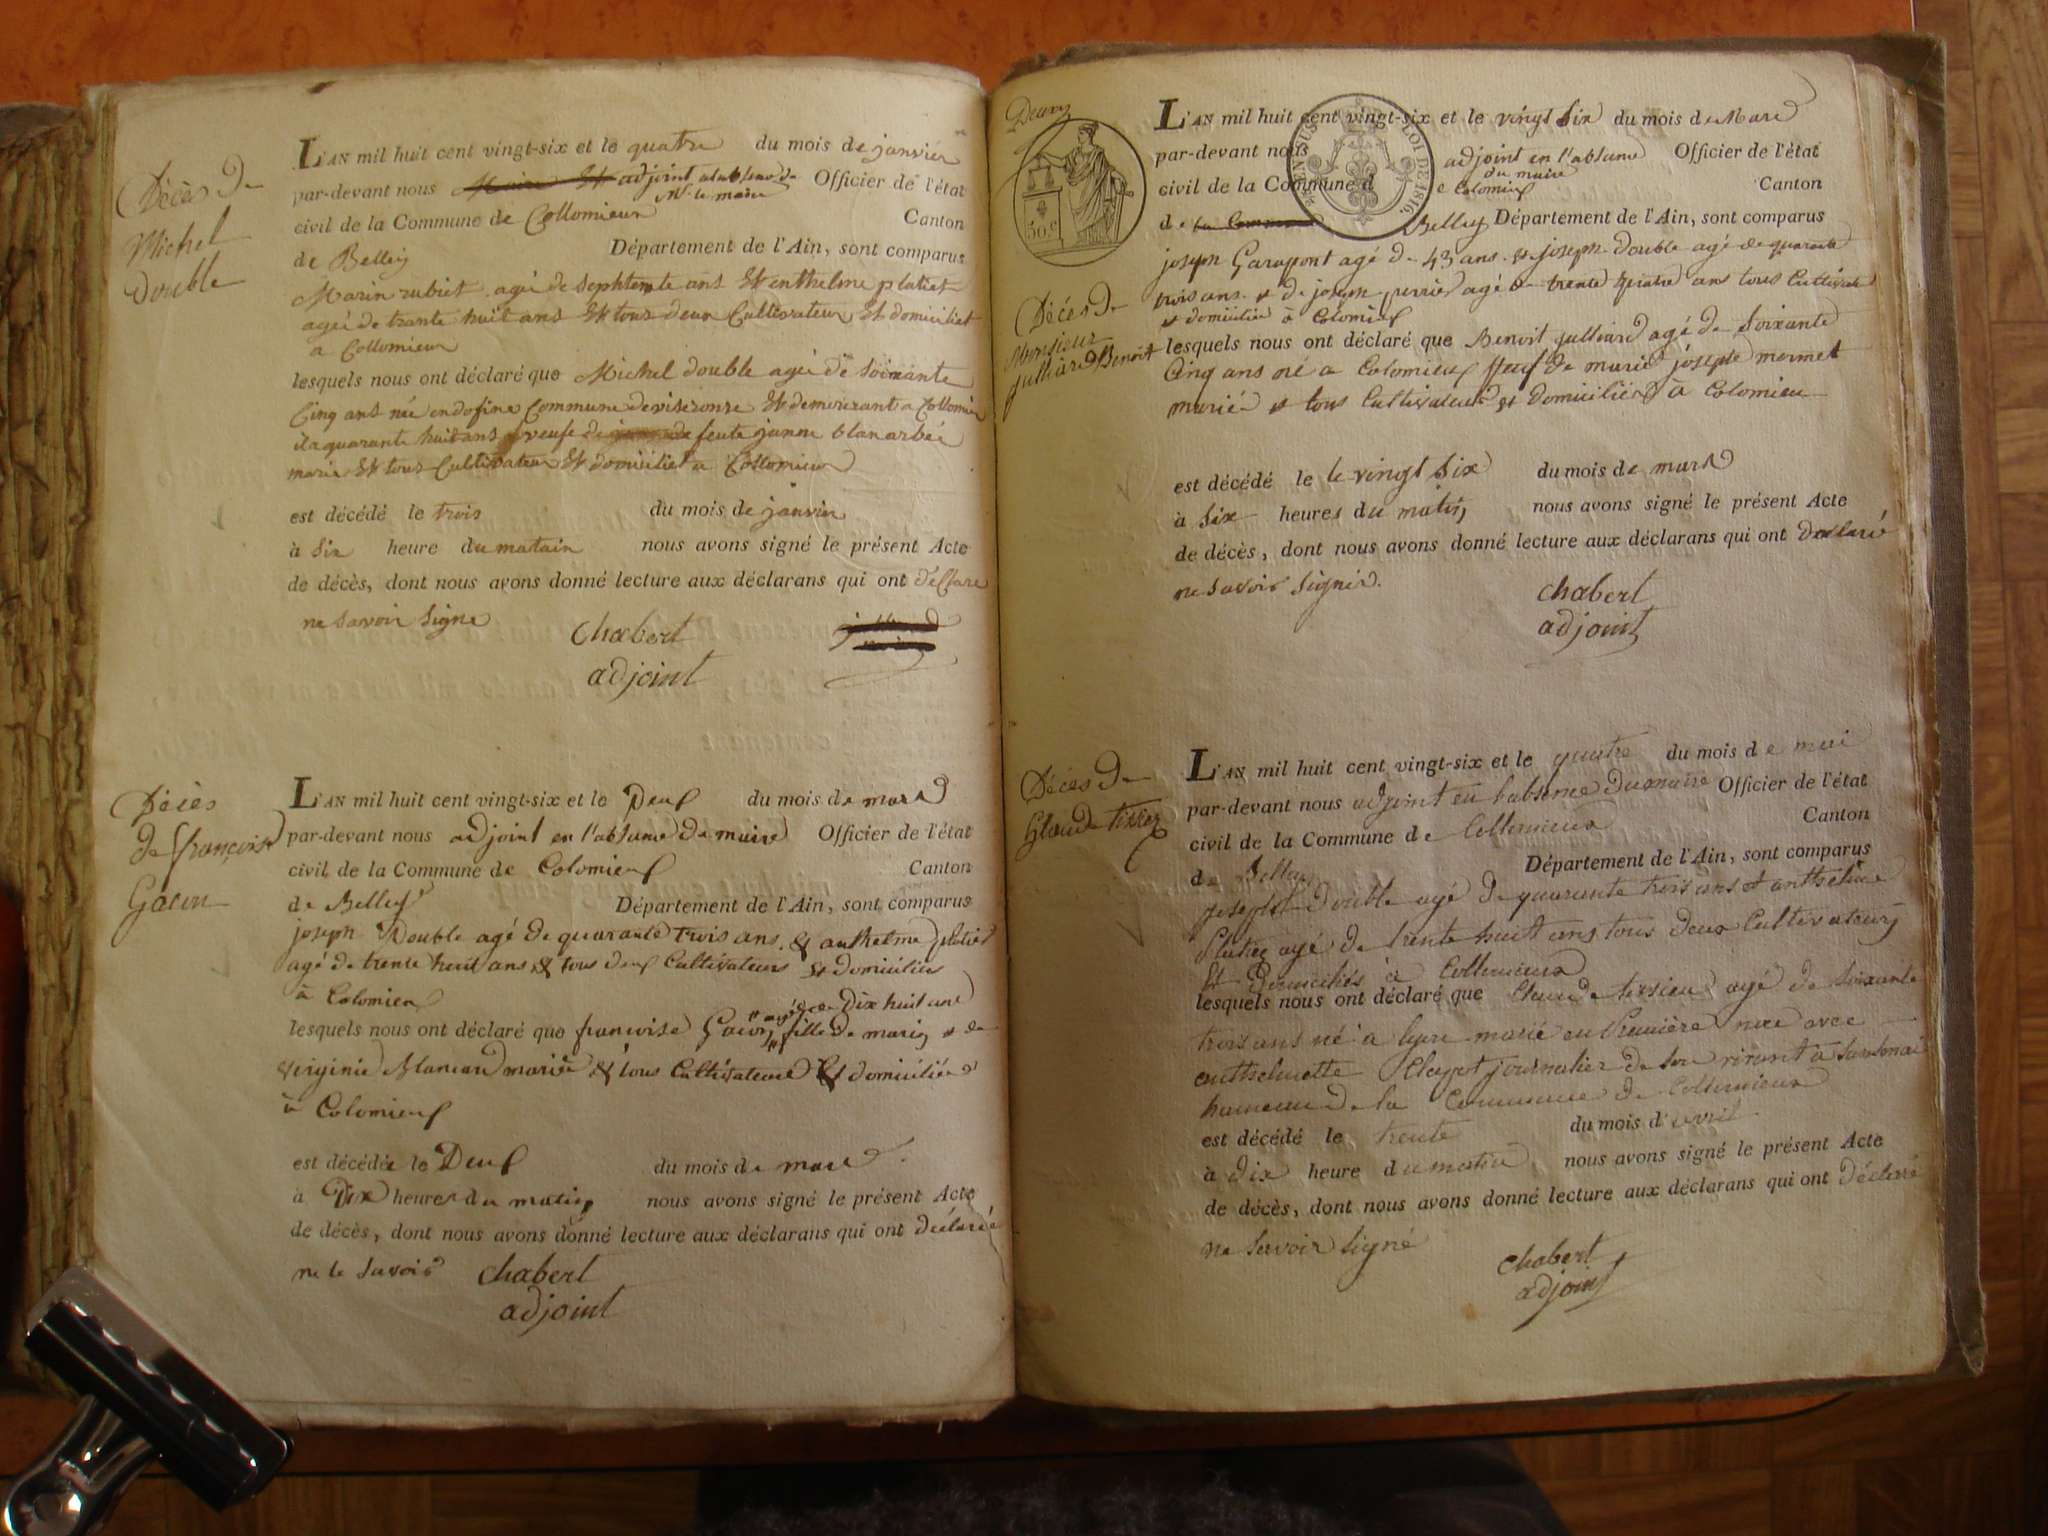 Décès de
Michel
double
L'AN mil huit cent vingt-six et le quatre du mois de janvier
par-devant nous adjoint Officier de l'état
Mr le maire
civil de la Commune de Collomieux Canton
de Belley Département de l'Ain, sont comparus
Marin rubiet agé de ans Et enthelme platiet
agéi de trante huit ans Et tous deux Cultivateur Et domiciliet
a Collomieux
lesquels nous ont déclaré que Michel double agéi de Soixante
Cinq ans née en dofine Commune de Et demeurant a Collomieu
il a quarante huit ans veufe de feute
marie Et tous Cultivateur Et domiciliet a Collomieux
est décédé le trois du mois de janvier
à Six heure du matain nous avons signé le présent Acte
de décès, dont nous avons donné lecture aux déclarans qui ont déClare
ne Savoir Signe
Chabert
adjoint
Décès
de françoise
Gacon
L'AN mil huit cent vingt-six et le Deux du mois de mars
par-devant nous adjoint en l'absence de maire Officier de l'état
civil de la Commune de Colomieux Canton
de Belley Département de l'Ain, sont comparus
joseph Double agé de quarante trois ans & anthelme platiet
agé de trente huit ans & tous deux Cultivateurs Et domiciliés
à Colomieu
agée de Dix huit ans
lesquels nous ont déclaré que francoise Gacon fille de marin et de
virginie mariée & tous Cultivateurs Et domiciliée
à Colomieux
est décédée le Deux du mois de mars
à Dix heures du matin nous avons signé le présent Acte
de décès, dont nous avons donné lecture aux déclarans qui ont déclarée
ne le Savoir Chabert
adjoint
50.C
LOI DE 1816.
Décès de
Monsieur
julliard Benoit
L'AN mil huit cent vingt-six et le vingt Six du mois de Mars
par-devant nous adjoint en l'absence Officier de l'état
du maire
civil de la Commune de Colomieux Canton
de Belley Département de l'Ain, sont comparus
joseph Garapont agé de 43 ans et joseph double agé de quarante
trois ans et de joseph perrier agé de trente quatre ans tous Cultivate
et domicilié à Colomieux
lesquels nous ont déclaré que Benoit julliard agé de Soixante
Cinq ans né a Colomieux veuf de marie josephe mermet
mariée et tous Cultivateur et domiciliés à Colomieu
est décédé le le vingt Six du mois de mars
à Six heures du matin nous avons signé le présent Acte
de décès, dont nous avons donné lecture aux déclarans qui ont Déclaré
ne Savoir Signér.
Chabert
adjoint
Décès de
Glaude
L'AN mil huit cent vingt-six et le quatre du mois de mai
par-devant nous adjoint en l'absence du maire Officier de l'état
civil de la Commune de Collomieux Canton
de Belley Département de l'Ain, sont comparus
joseph Double agé de quarante trois ans et anthelme
Platiez agé de trente huit ans tous deux Cultivateurs
Et Domiciliés à Collomieux
lesquels nous ont déclaré que Claude agé de Soixante
trois ans né à marié en Premiere avec
enthelmette journalier de Son vivant à
hameau de la Commune de Collomieux
est décédé le trente du mois d'avril
à dix heure du matin nous avons signé le présent Acte
de décès, dont nous avons donné lecture aux déclarans qui ont Déclaré
ne Savoir Signé
Chabert
adjoint